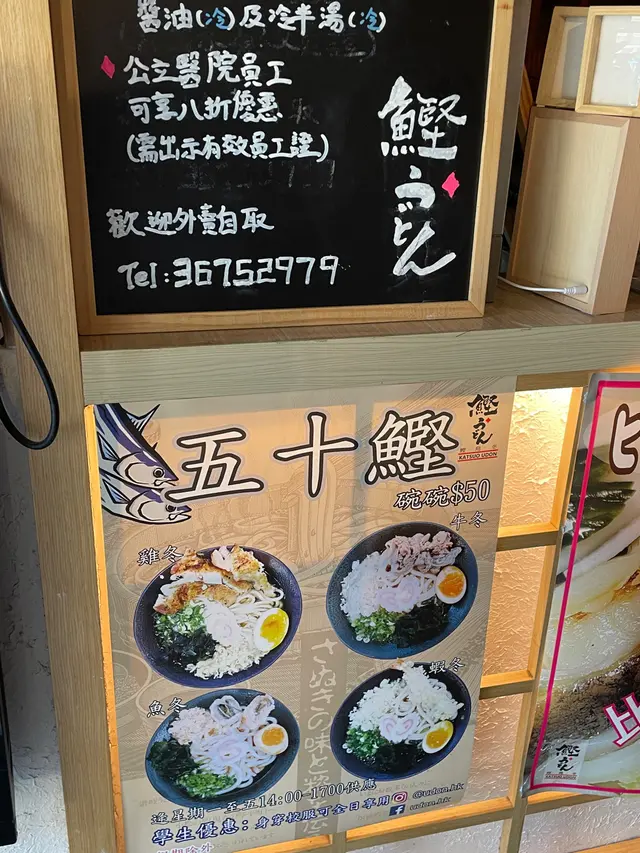 醬油(冷)及冷半湯(冷)
公立醫院員工
可享八折優惠
(需出示有效員工證)
歡迎外賣自取
Tel:36752979
鰹うどん
五十鰹
鰹うどん
KATSUO UDON
碗碗$50
雞冬
牛冬
魚冬
蝦冬
さぬきの味と
逢星期一至五14:00-1700供應
學生優惠:身穿校服可全日享用
@udon.hk
udon.hk
鰹うどん